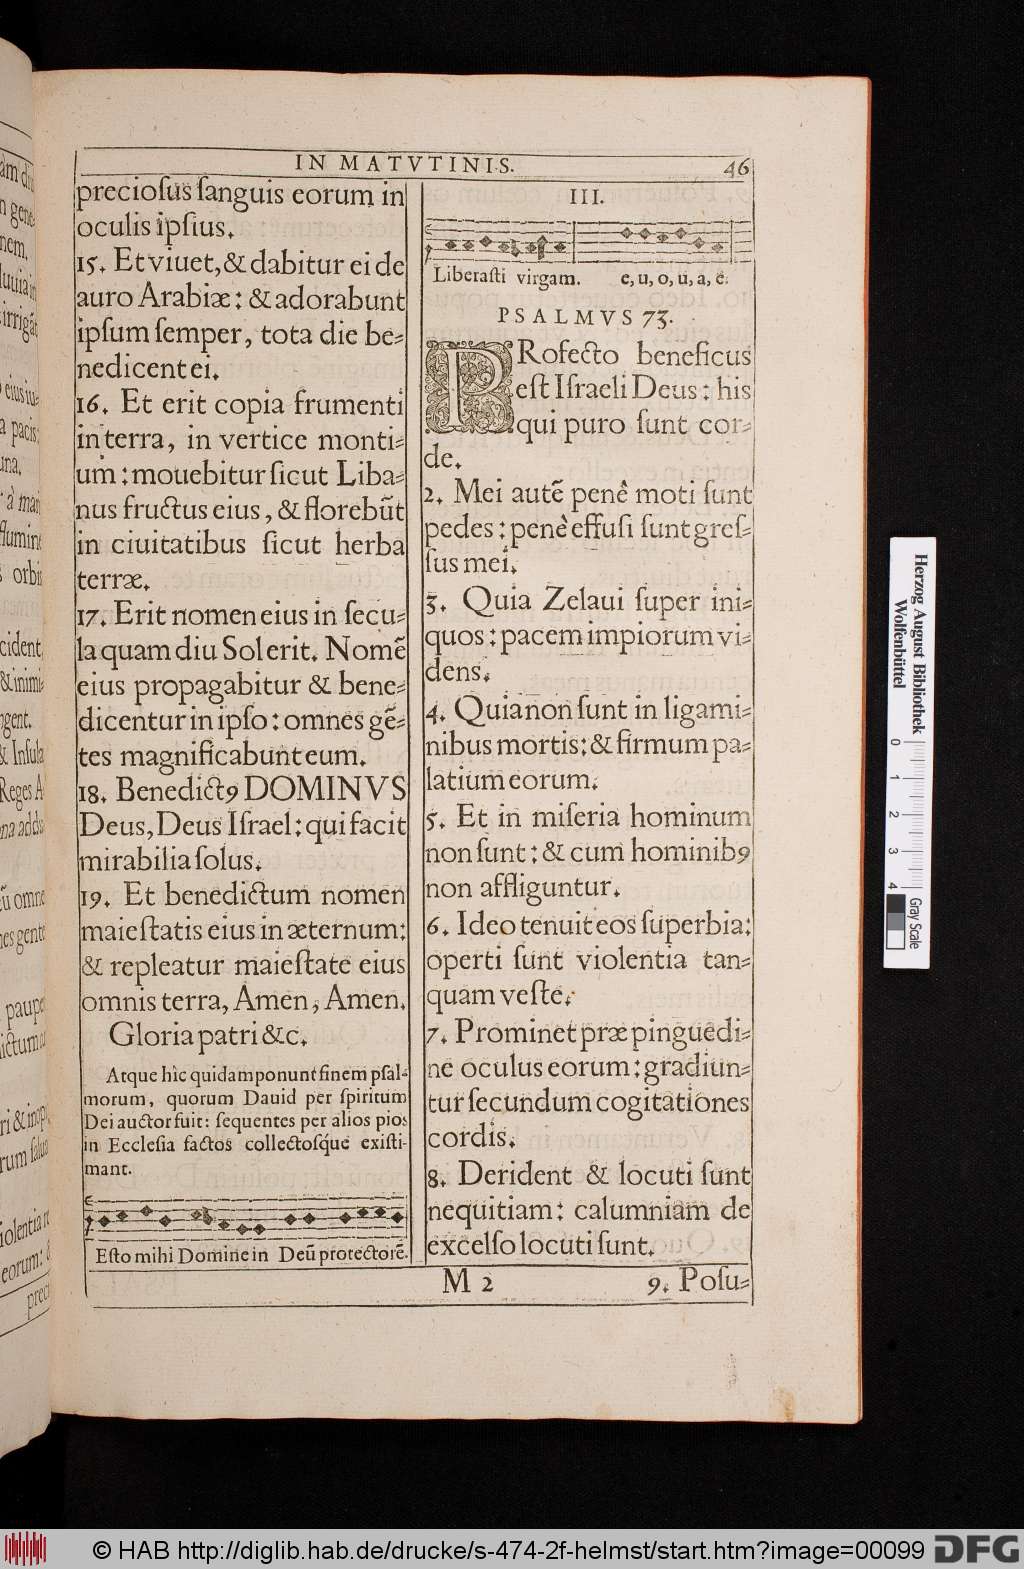 IN MATVTINIS.
46
preciosus ſanguis eorum in
oculis ipſius.
15. Et viuet, & dabitur ei de
auro Arabiæ: & adorabunt
ipſum ſemper, tota die be-
nedicent ei.
16. Et erit copia frumenti
in terra, in vertice monti-
um: mouebitur ſicut Liba-
nus fructus eius, & florebũt
in ciuitatibus ſicut herba
terræ.
17. Erit nomen eius in ſecu-
la quam diu Sol erit. Nomẽ
eius propagabitur & bene-
dicentur in ipſo: omnes gẽ-
tes magnificabunt eum.
18. Benedictꝰ DOMINVS
Deus, Deus Iſrael: qui facit
mirabilia ſolus.
19. Et benedictum nomen
maieſtatis eius in æternum:
& repleatur maieſtate eius
omnis terra, Amen, Amen.
Gloria patri &c.
Atque hîc quidam ponunt finem pſal-
morum, quorum Dauid per ſpiritum
Dei auctor fuit: ſequentes per alios pios
in Eccleſia factos collectosque exiſti-
mant.
Eſto mihi Domine in Deũ protectorẽ.
III.
Liberaſti virgam. e, u, o, u, a, e.
PSALMVS 73.
PRofecto beneficus
eſt Iſraeli Deus: his
qui puro ſunt cor-
de.
2. Mei autẽ penè moti ſunt
pedes: penè effuſi ſunt greſ-
ſus mei.
3. Quia Zelaui ſuper ini-
quos: pacem impiorum vi-
dens.
4. Quia non ſunt in ligami-
nibus mortis: & firmum pa-
latium eorum.
5. Et in miſeria hominum
non ſunt: & cum hominibꝰ
non affliguntur.
6. Ideo tenuit eos ſuperbia:
operti ſunt violentia tan-
quam veſte.
7. Prominet præ pinguedi-
ne oculus eorum: gradiun-
tur ſecundum cogitationes
cordis.
8. Derident & locuti ſunt
nequitiam: calumniam de
excelſo locuti ſunt.
M 2
9. Poſu-
Herzog August Bibliothek
Wolfenbüttel
0 1 2 3 4
Gray Scale
© HAB http://diglib.hab.de/drucke/s-474-2f-helmst/start.htm?image=00099
DFG